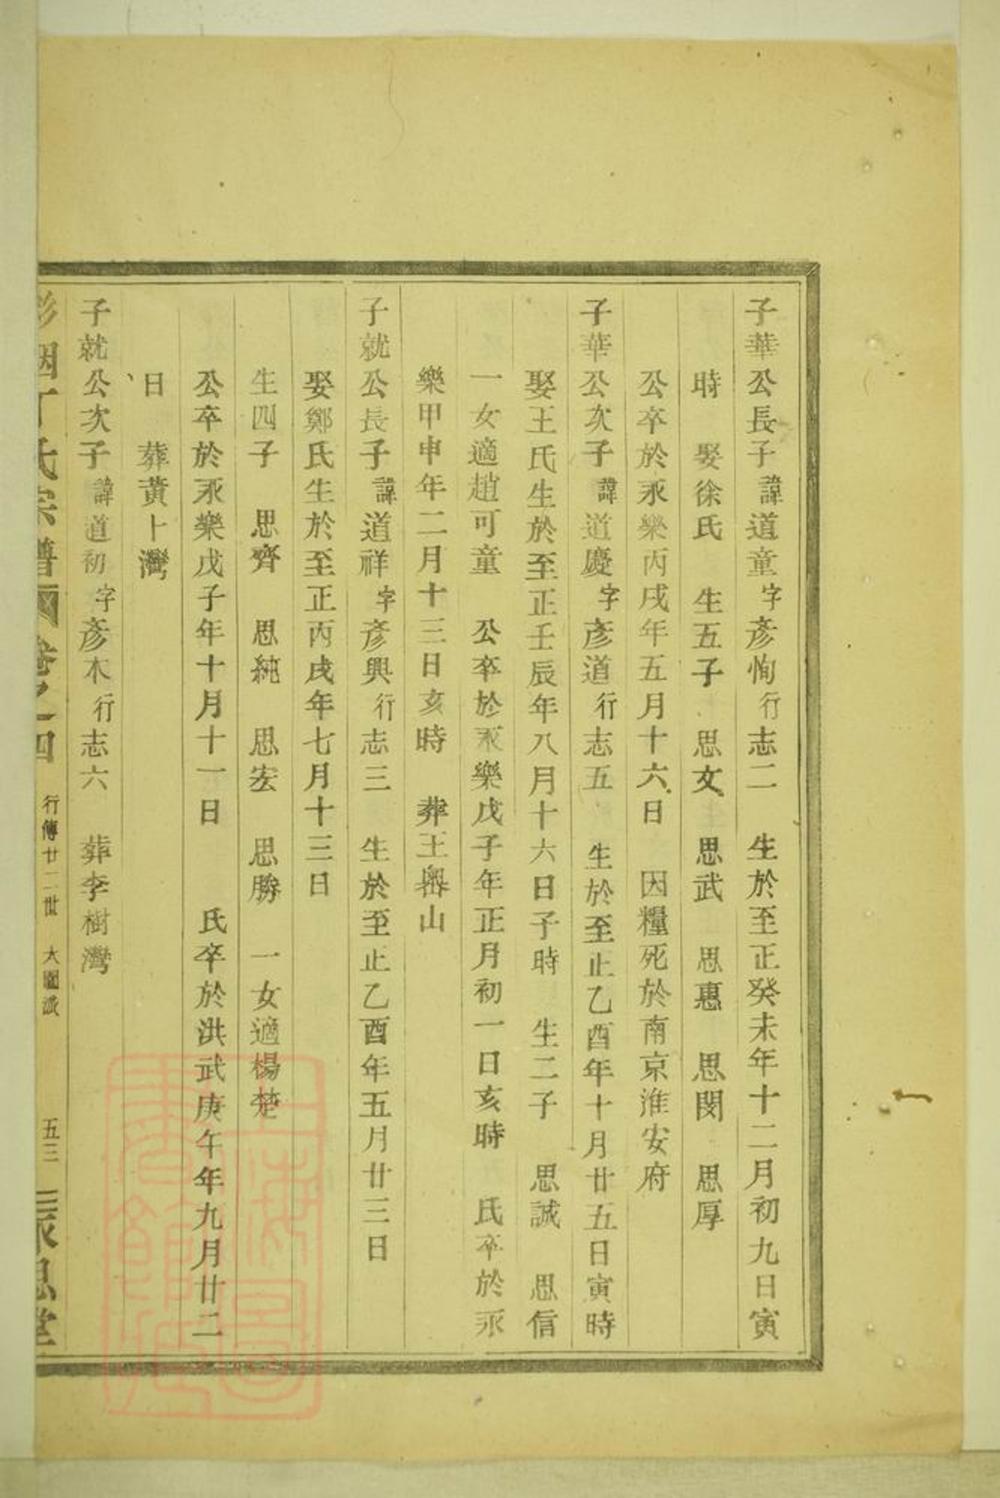 子華公長子諱道童字彥恂行志二　生於至正癸未年十二月初九日寅
時　娶徐氏　生五子　思文　思武　思惠　思閔　思厚
公卒於永樂丙戌年五月十六日　因糧死於南京淮安府
子華公次子諱道慶字彥道行志五　生於至正乙酉年十月廿五日寅時
娶王氏生於至正壬辰年八月十六日子時　生二子　思誠　思信
一女適趙可童　公卒於永樂戊子年正月初一日亥時　氏卒於永
樂甲申年二月十三日亥時　葬王嶴山
子就公長子諱道祥字彥興行志三　生於至正乙酉年五月廿三日
娶鄭氏生於至正丙戌年七月十三日
生四子　思齊　思純　思宏　思勝　一女適楊楚
公卒於永樂戊子年十月十一日　氏卒於洪武庚午年九月廿二
日　葬黃卜灣
子就公次子諱道初字彥木行志六　葬李樹灣
丁氏宗譜　卷之四　行傳廿二世　五三　思堂